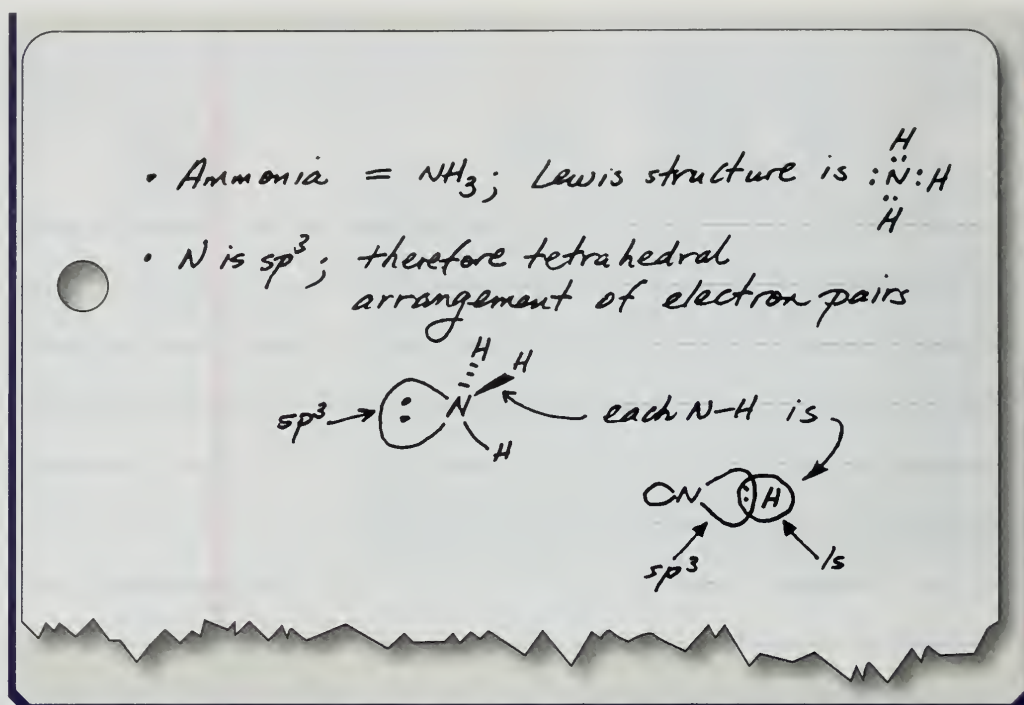 H
• Ammonia = NH₃; Lewis structure is :N̈:H
H
• N is sp³; therefore tetrahedral
arrangement of electron pairs
H H
sp³ : N each N-H is
H
N : H
sp³ 1s